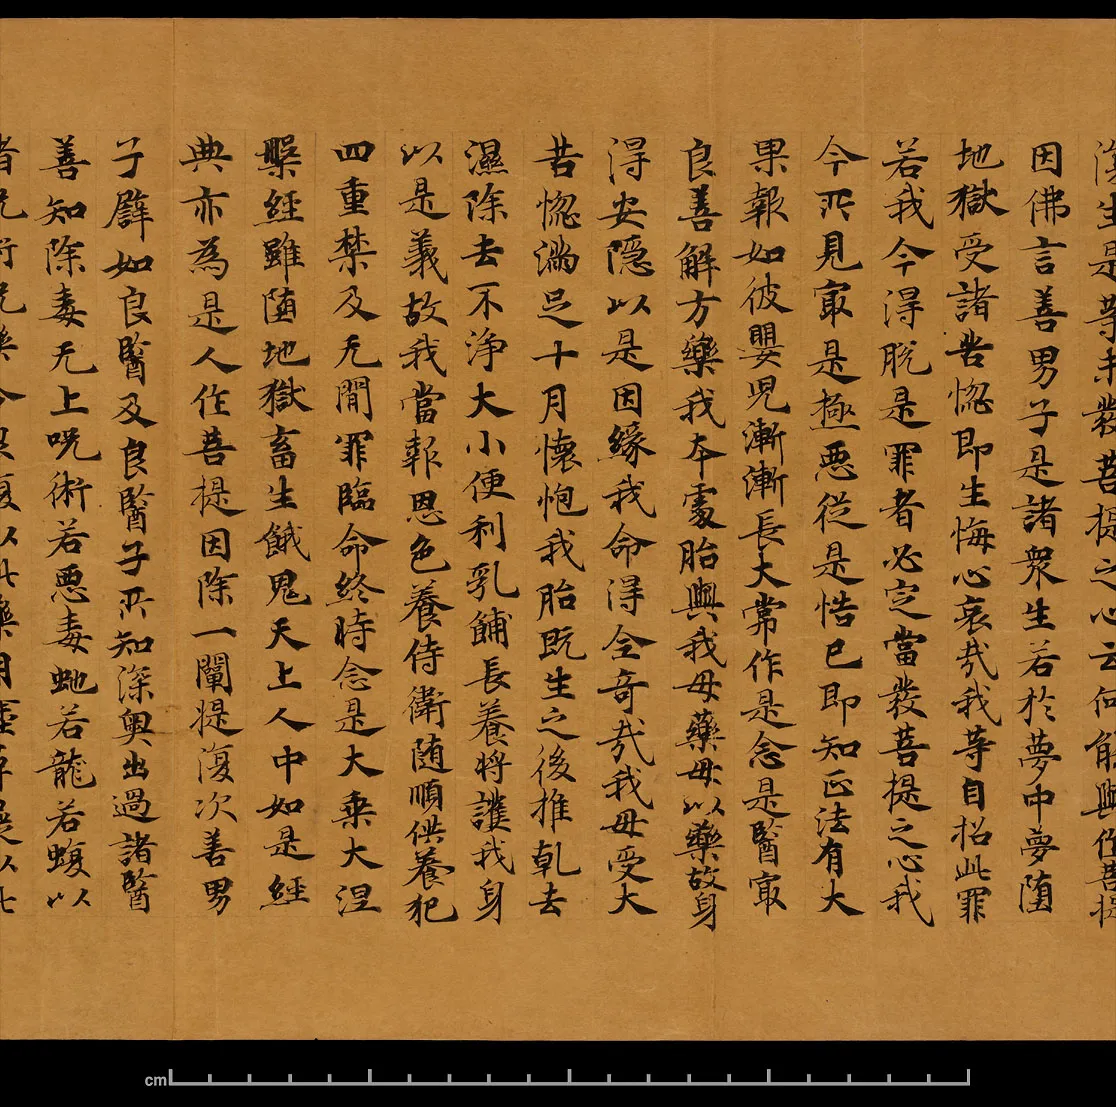 生是等未發菩提之心云何能與作菩提
因佛言善男子是諸衆生若於夢中夢墮
地獄受諸苦惱即生悔心哀哉我等自招此罪
若我今得脫是罪者必定當發菩提之心我
今所見冣是極惡從是悟已即知正法有大
果報如彼嬰兒漸漸長大常作是念是醫冣
良善解方藥我本處胎與我母藥母以藥故身
得安隱以是因緣我命得全奇哉我母受大
苦惱滿足十月懷抱我胎既生之後推乹去
濕除去不淨大小便利乳餔長養將護我身
以是義故我當報恩色養侍衛隨順供養犯
四重禁及无間罪臨命終時念是大乘大涅
槃經雖墮地獄畜生餓鬼天上人中如是經
典亦為是人作菩提因除一闡提復次善男
子譬如良醫及良醫子所知深奧出過諸醫
善知除毒无上呪術若惡毒虵若龍若蝮以
呪術呪藥令良復以此藥用塗革屣以此
cm